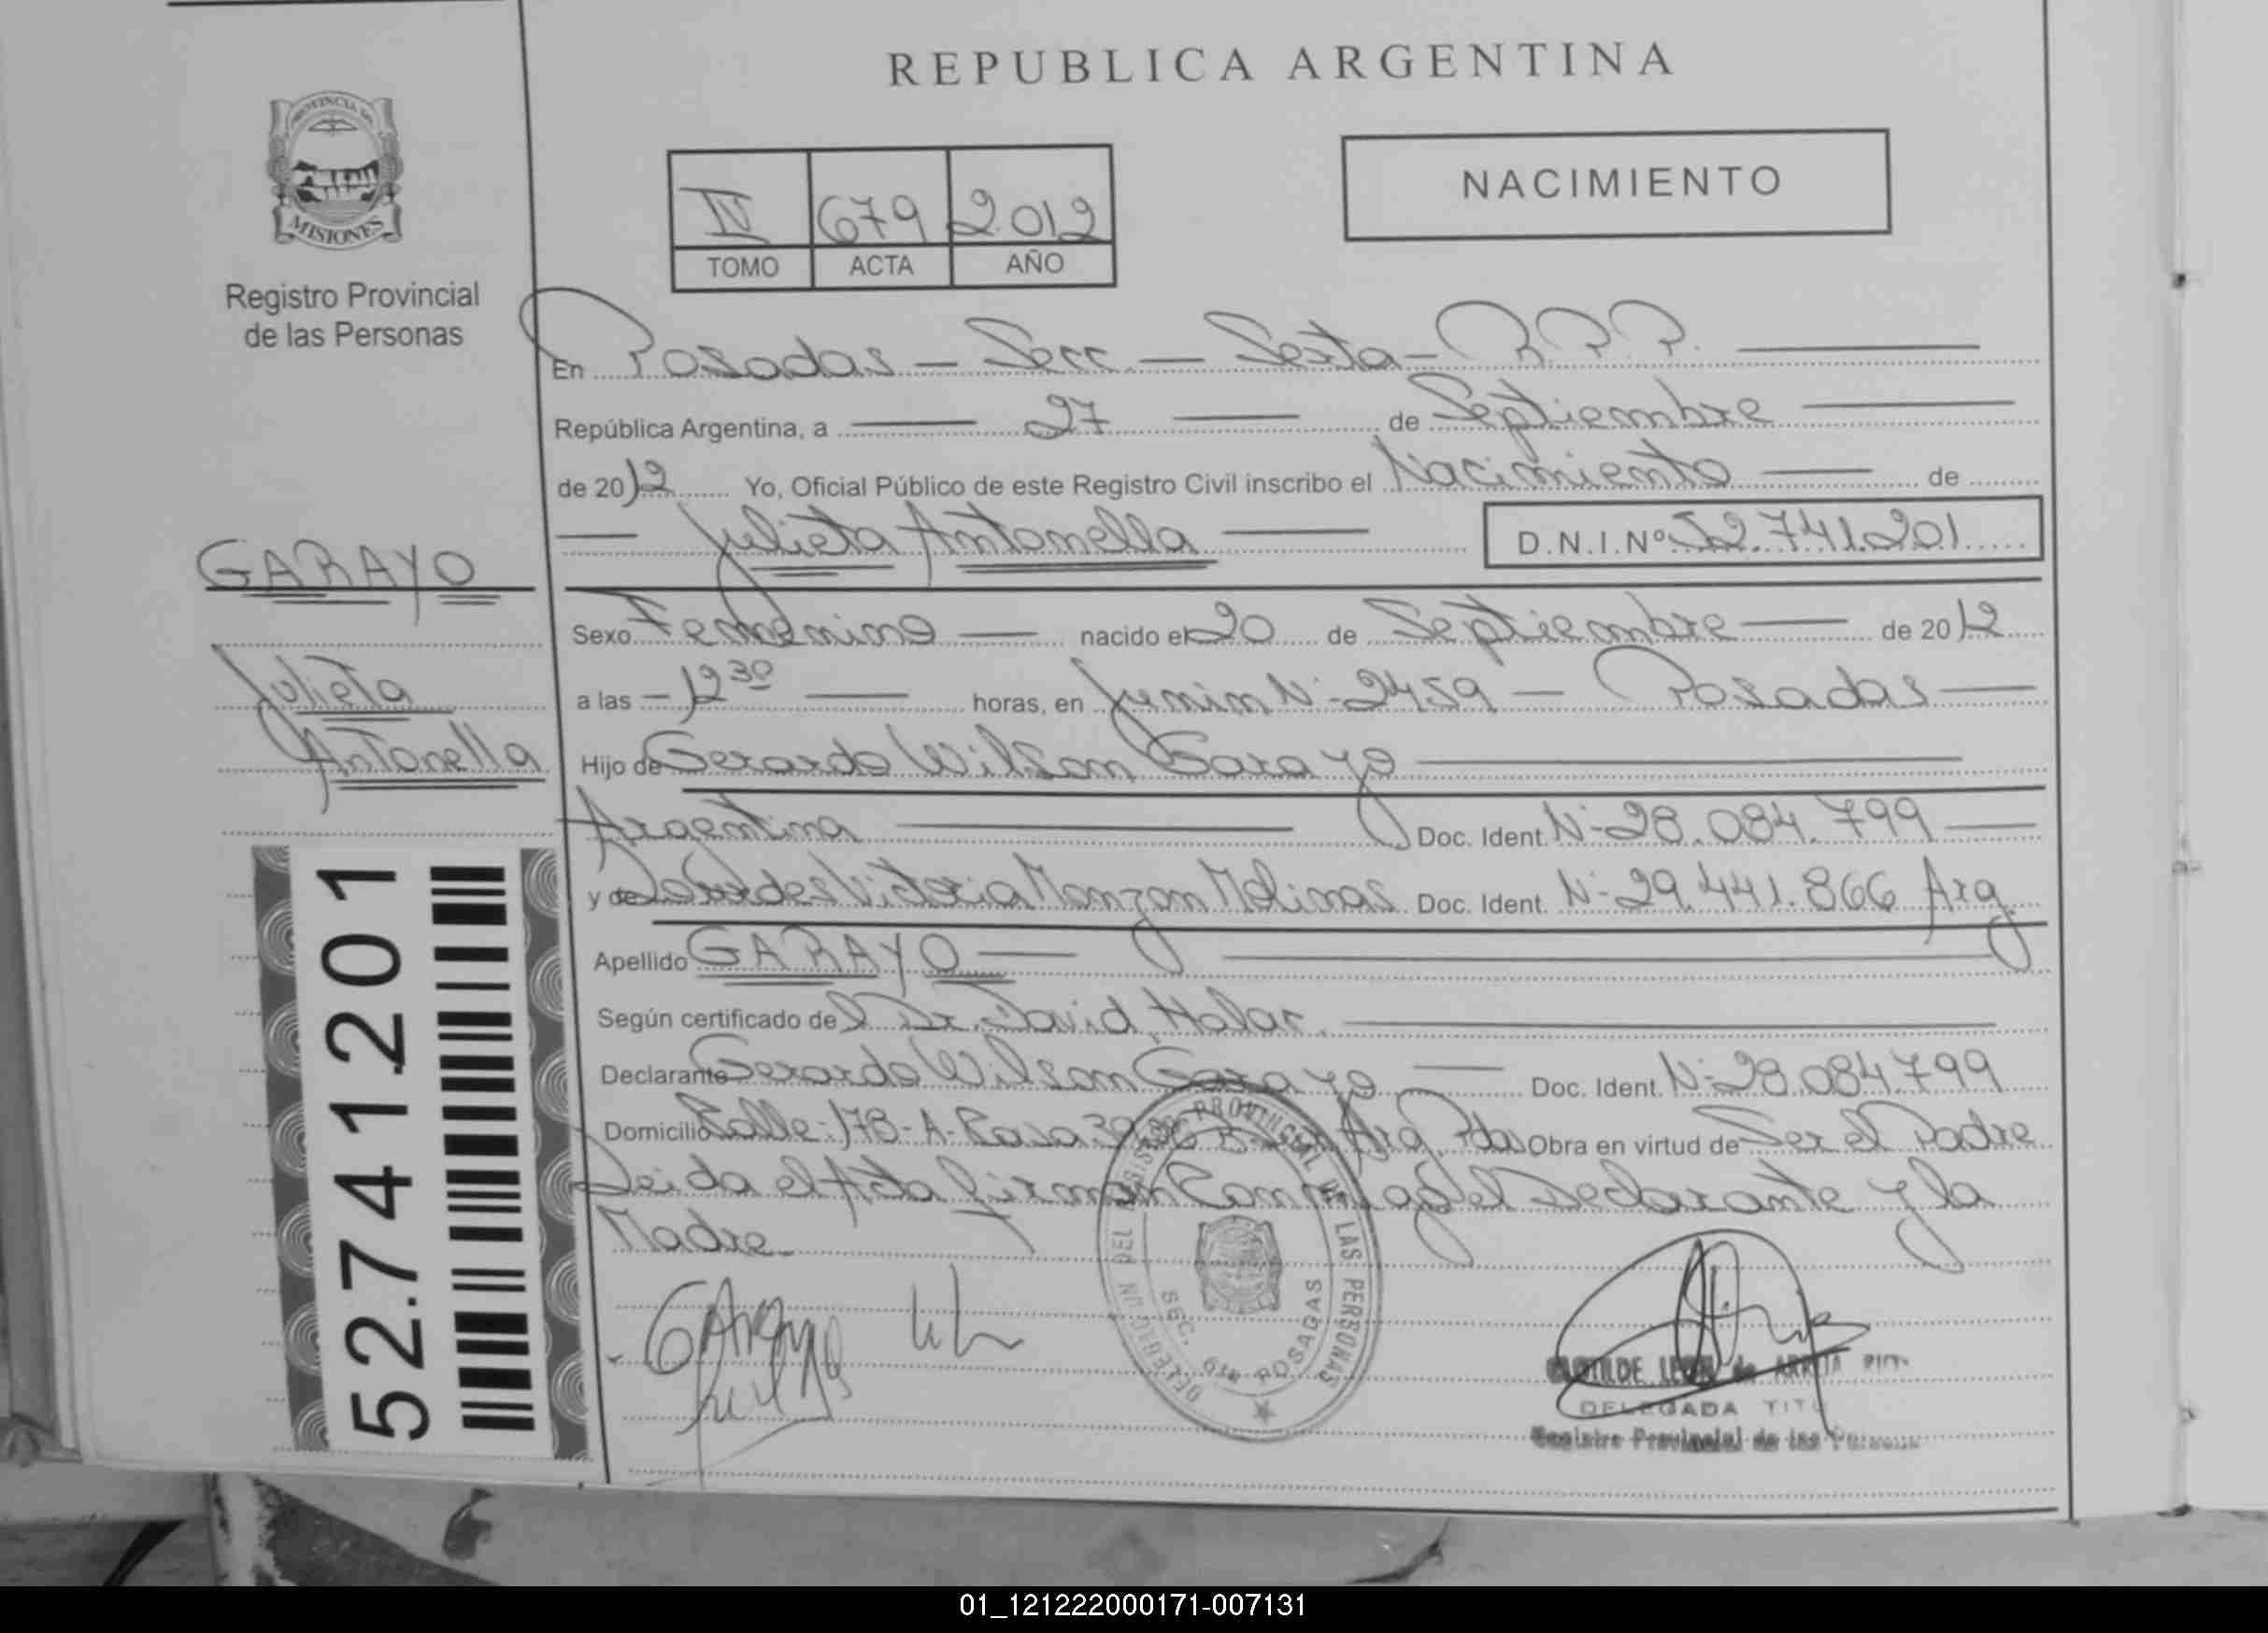 REPUBLICA ARGENTINA
PROVINCIA DE
MISIONES
Registro Provincial
de las Personas
IV 679 2012
TOMO ACTA AÑO
NACIMIENTO
En Posadas - Secc. - Sexta - R.P.P.
República Argentina, a 27 de Septiembre
de 2012 Yo, Oficial Público de este Registro Civil inscribo el Nacimiento de
Julieta Antonella D.N.I.Nº 52.741.201
GARAYO
Julieta
Antonella
Sexo Femenino nacido el 20 de Septiembre de 2012
a las - 12 30 horas, en Junin N:-2459 - Posadas
Hijo de Gerardo Wilson Garayo
Argentina Doc. Ident. N:-28.084.799
y de Lourdes Victoria Monzon Molinas Doc. Ident. N:-29.441.866 Arg.
Apellido GARAYO
Según certificado del Dr. David Halac.
Declarante Gerardo Wilson Garayo Doc. Ident. N:-28.084.799
Domicilio Calle:178-A-Casa Arg. Pdas Obra en virtud de Ser el Padre
Leida el Acta firman Conmigo el Declarante y la
Madre.
52.741.201
GARAYO
DEL REGISTRO PROVINCIAL DE LAS PERSONAS
SEC. 6ta POSADAS
CLOTILDE de
DELEGADA
Registro Provincial de las Personas
01_121222000171-007131